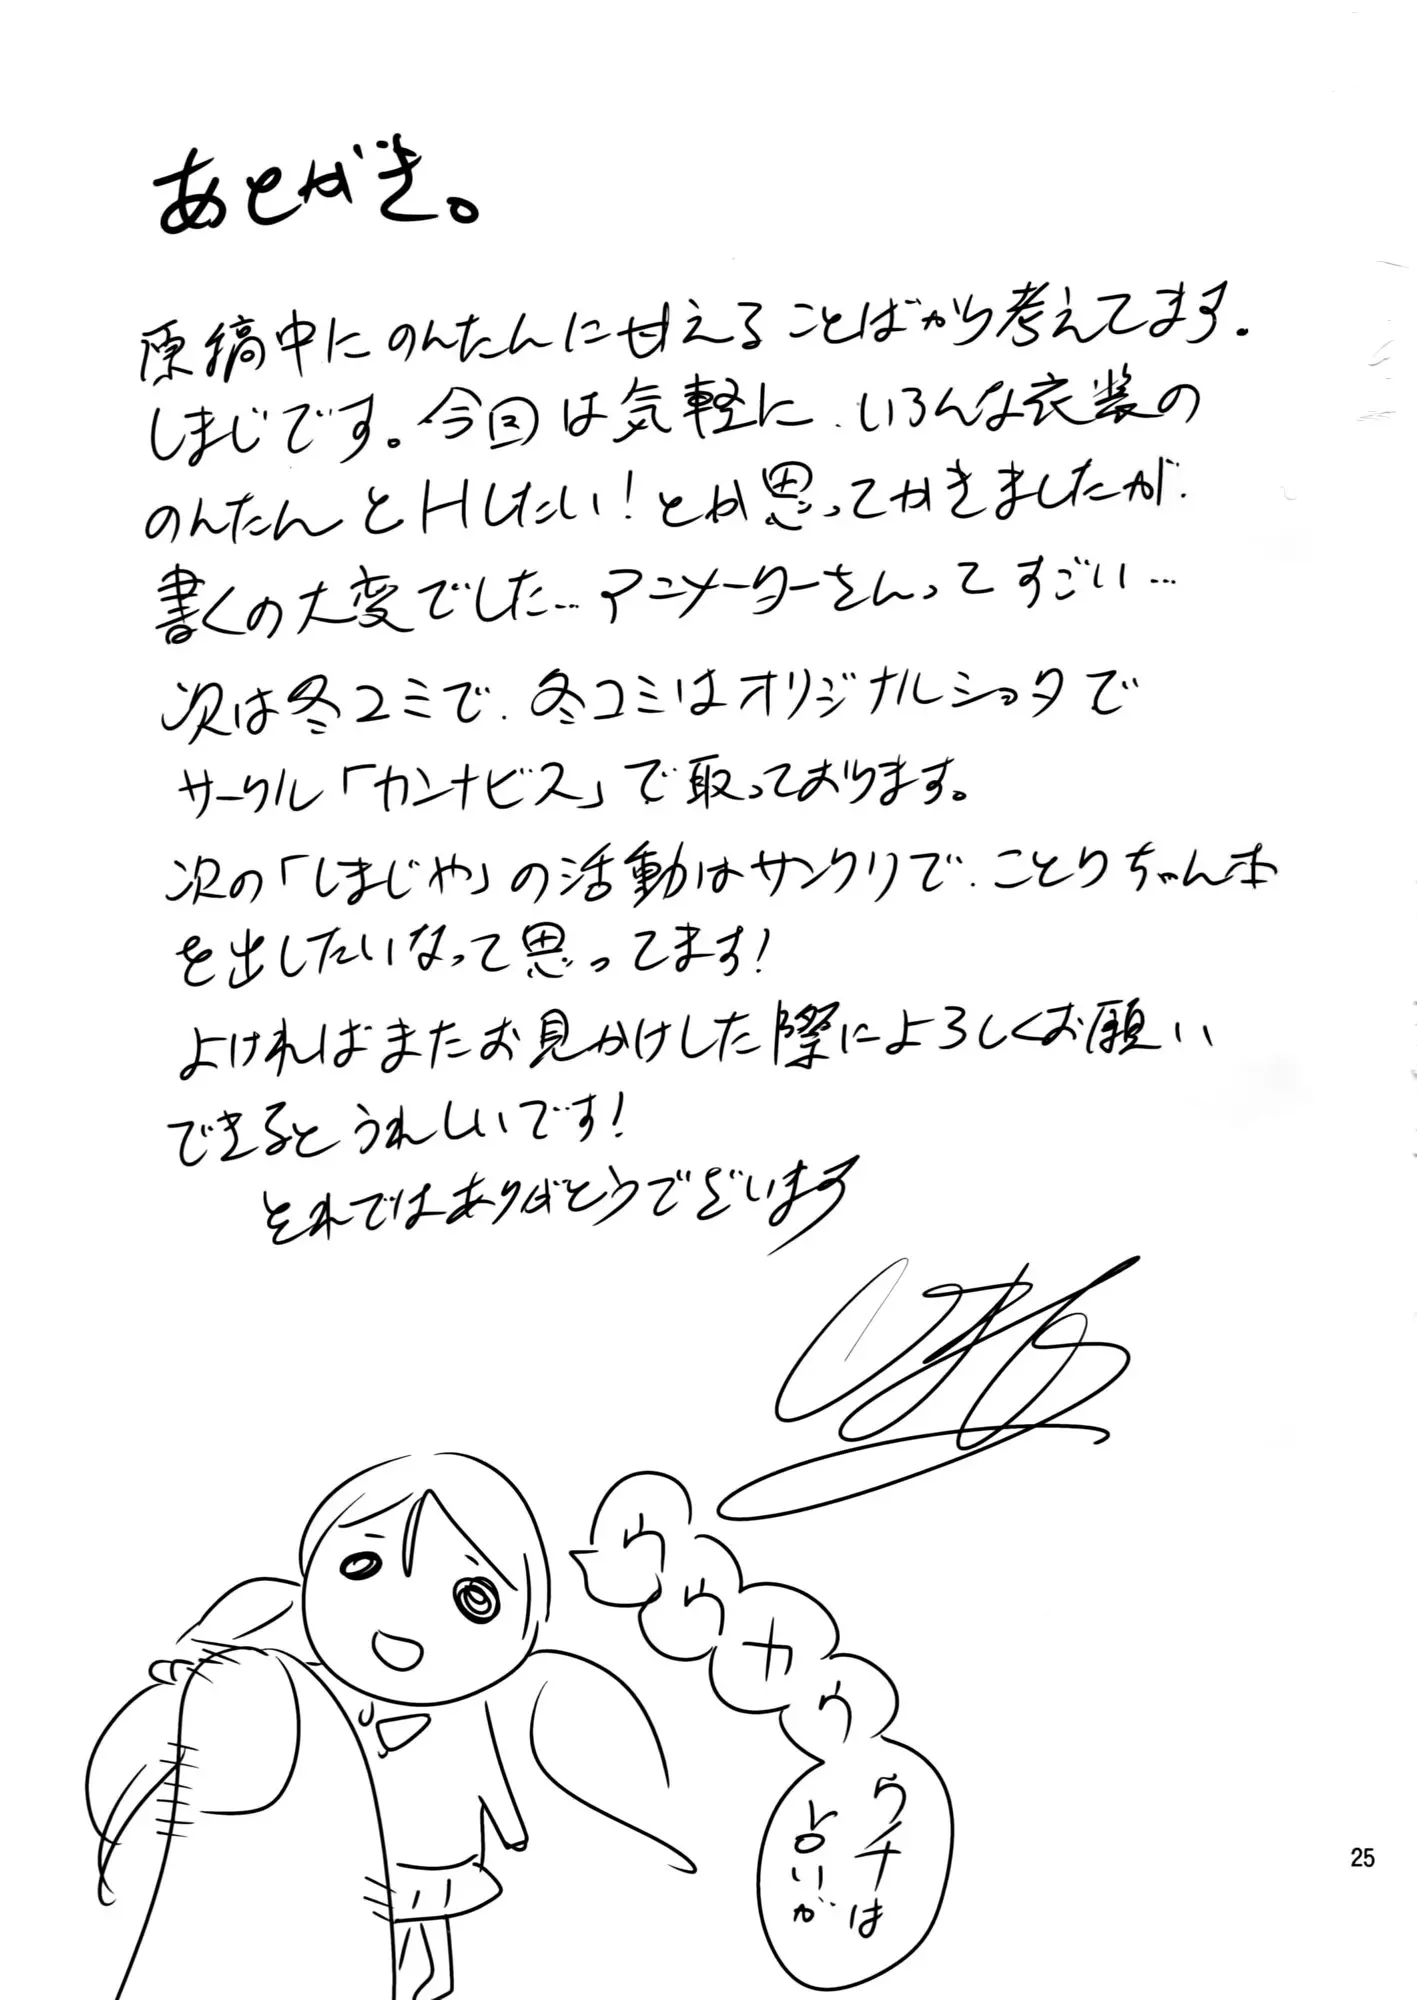 あとがき。
原稿中にのんたんに甘えることばかり考えてます。
しまじです。今回は気軽に、いろんな衣装の
のんたんとHしたい！とか思ってかきましたが、
書くの大変でした…アニメーターさんってすごい…
次は冬コミで、冬コミはオリジナルショタで
サークル「カンナビス」で取っております。
次の「しまじや」の活動はサンクリで、ことりちゃん本
を出したいなって思ってます！
よければまたお見かけした際によろしくお願い
できるとうれしいです！
それではありがとうございます
ウ
ウ
カ
ウ
ウチは
25